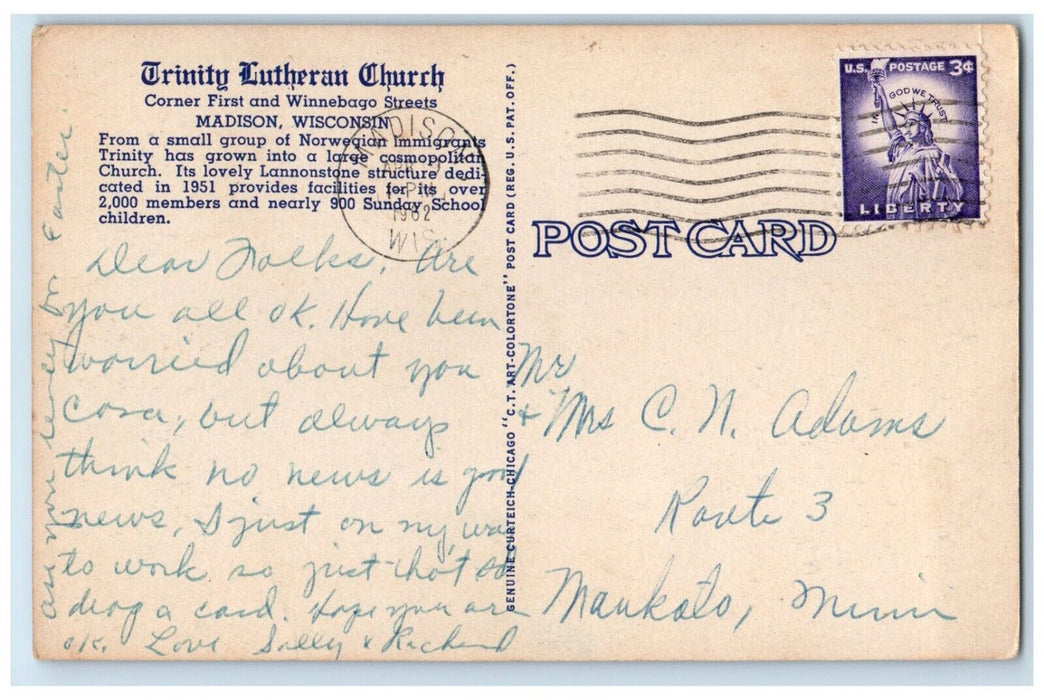 Trinity Lutheran Church
Corner First and Winnebago Streets
MADISON, WISCONSIN
From a small group of Norwegian immigrants
Trinity has grown into a large cosmopolitan
Church. Its lovely Lannonstone structure dedi-
cated in 1951 provides facilities for its over
2,000 members and nearly 900 Sunday School
children.
MADISON
PM
1962
WIS.
Dear Folks, Are
you all ok. Have been
worried about you
Cora, but always
think no news is good
news, I just on my way
to work so just that
drop a card. Hope you are
ok. Love Sally & Richard
are you for Easter.
GENUINE CURTEICH-CHICAGO "C.T. ART-COLORTONE" POST CARD (REG. U.S. PAT. OFF.)
POST CARD
U.S. POSTAGE 3¢
IN GOD WE TRUST
LIBERTY
Mr
& Mrs C. N. Adams
Route 3
Mankato, Minn